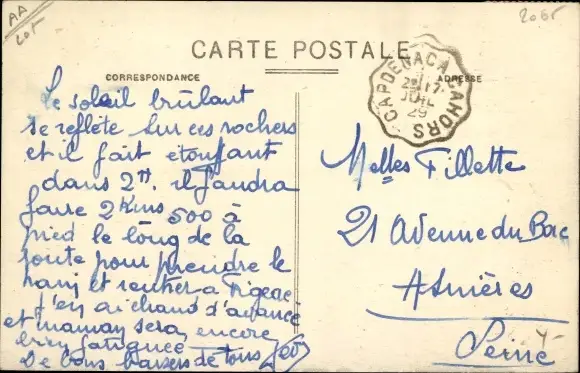 AA
205
206F
CARTE POSTALE
CORRESPONDANCE
ADRESSE
CAPDENAC A CAHORS
17
JUIL
29
Le soleil brûlant
se reflète sur ces rochers
et il fait étouffant
dans 2H. il faudra
faire 2 Kms 500 à
pied le long de la
route pour prendre le
train et rentrer a Figeac
j'en ai chaud d'avance
et maman sera encore
bien fatiguée
De bons baisers de tous
Melles Fillette
21 Avenue du Bac
Asnières
Seine